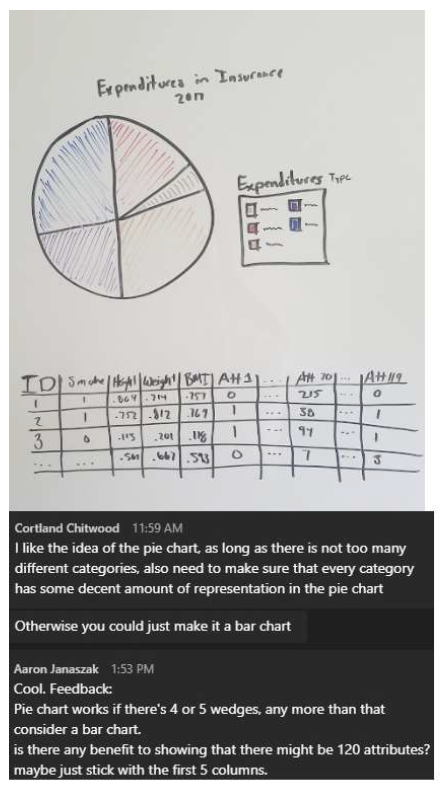 Expenditures in Insurance
2017
Expenditures Type
ID Smoke Height Weight BMI Att 1 ... Att 70 ... Att 119
1 1 .864 .714 .757 0 ... 215 ... 0
2 1 .752 .812 .769 1 ... 38 ... 1
3 0 .115 .201 .118 1 ... 94 ... 1
... ... .501 .667 .593 0 ... 7 ... 3
Cortland Chitwood 11:59 AM
I like the idea of the pie chart, as long as there is not too many
different categories, also need to make sure that every category
has some decent amount of representation in the pie chart
Otherwise you could just make it a bar chart
Aaron Janaszak 1:53 PM
Cool. Feedback:
Pie chart works if there's 4 or 5 wedges, any more than that
consider a bar chart.
is there any benefit to showing that there might be 120 attributes?
maybe just stick with the first 5 columns.